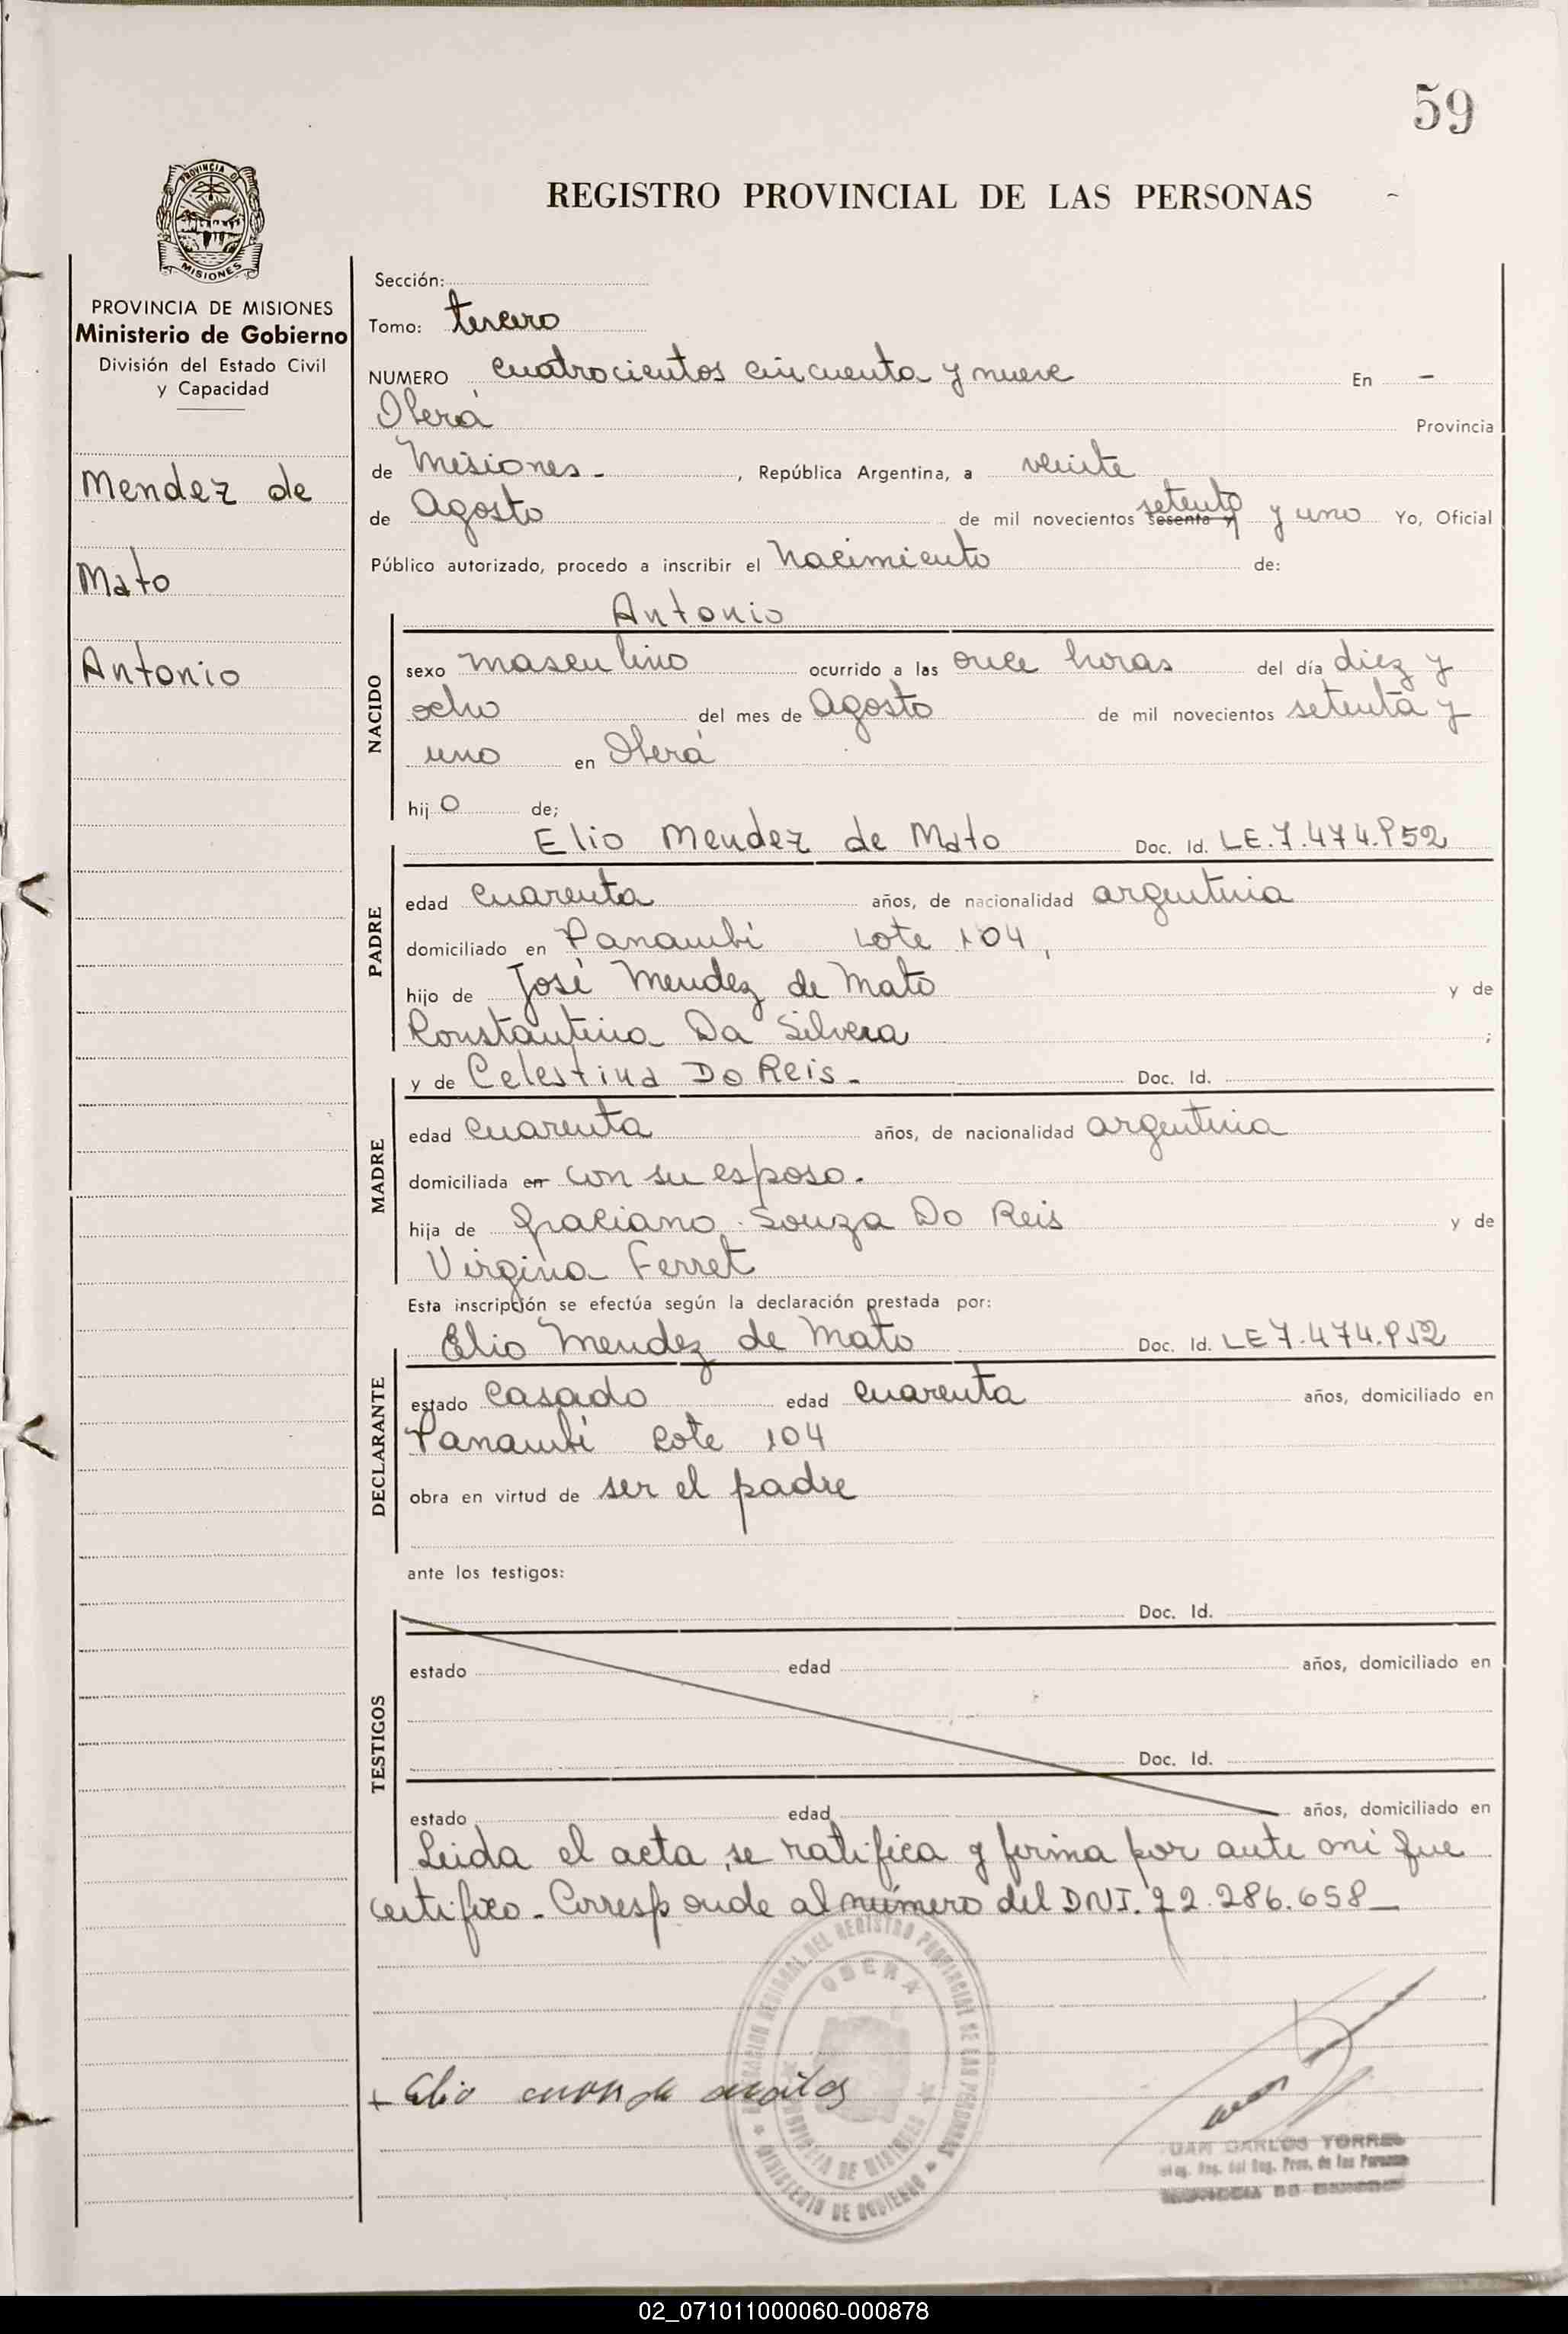 59
REGISTRO PROVINCIAL DE LAS PERSONAS
PROVINCIA DE MISIONES
PROVINCIA DE MISIONES
Ministerio de Gobierno
División del Estado Civil
y Capacidad
Mendez de
Mato
Antonio
Sección:
Tomo: tercero
NUMERO cuatrocientos cincuenta y nueve En -
Oberá Provincia
de Misiones - , República Argentina, a veinte
de Agosto de mil novecientos sesenta y setenta y uno Yo, Oficial
Público autorizado, procedo a inscribir el Nacimiento de:
NACIDO
Antonio
sexo masculino ocurrido a las once horas del día diez y
ocho del mes de Agosto de mil novecientos setenta y
uno en Oberá
hijo de;
PADRE
Elio Mendez de Mato Doc. Id. LE.7.474.952
edad cuarenta años, de nacionalidad argentina
domiciliado en Panambí Lote 104,
hijo de José Mendez de Mato y de
Constantina Da Silvera ;
MADRE
y de Celestina Do Reis. Doc. Id.
edad cuarenta años, de nacionalidad argentina
domiciliada en con su esposo.
hija de Graciano Souza Do Reis y de
Virgina Ferret
Esta inscripción se efectúa según la declaración prestada por:
DECLARANTE
Elio Mendez de Mato Doc. Id. LE 7.474.952
estado Casado edad cuarenta años, domiciliado en
Panambí Lote 104
obra en virtud de ser el padre
ante los testigos:
TESTIGOS
Doc. Id.
estado edad años, domiciliado en
Doc. Id.
estado edad años, domiciliado en
Leida el acta, se ratifica y firma por ante mi que
certifico - Corresponde al número del DNI. 22.286.658 -
DELEGACION REGIONAL DEL REGISTRO PROVINCIAL DE LAS PERSONAS
OBERA
PROVINCIA DE MISIONES
MINISTERIO DE GOBIERNO
+ Elio
JUAN CARLOS TORRES
Reg. Prov. de las Personas
02_071011000060-000878